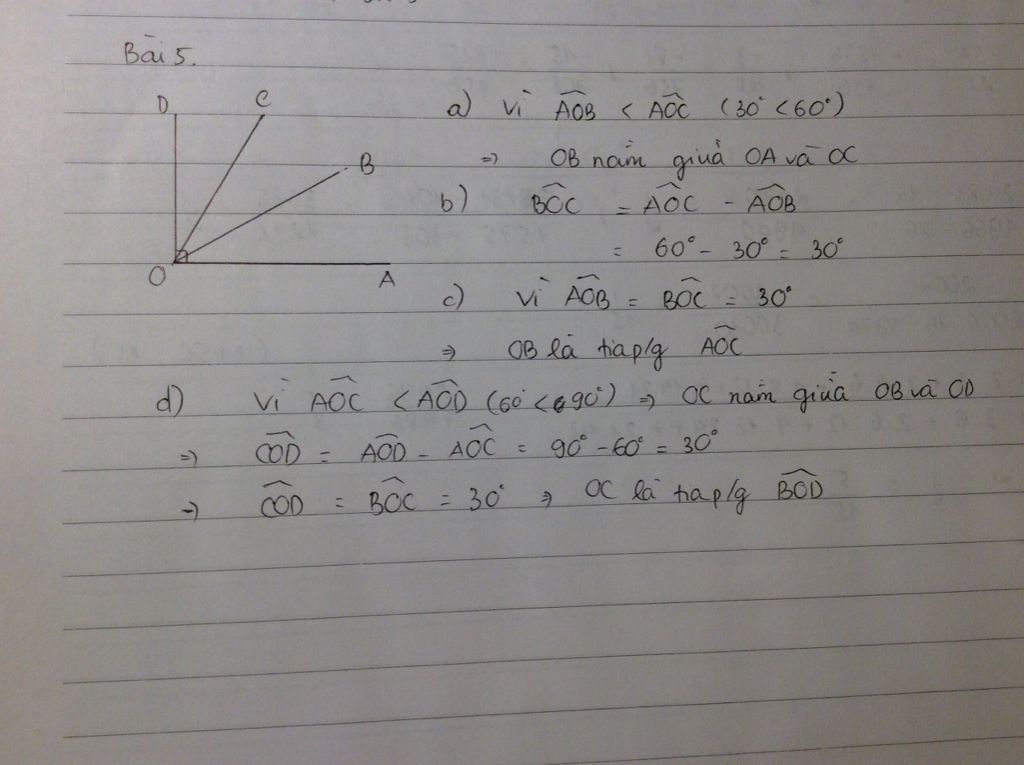 Bài 5.
D C
B
O A
a) Vì $\widehat{AOB}$ < $\widehat{AOC}$ (30° < 60°)
=> OB nằm giữa OA và OC
b) $\widehat{BOC}$ = $\widehat{AOC}$ - $\widehat{AOB}$
= 60° - 30° = 30°
c) Vì $\widehat{AOB}$ = $\widehat{BOC}$ = 30°
=> OB là tia p/g $\widehat{AOC}$
d) Vì $\widehat{AOC}$ < $\widehat{AOD}$ (60° < 90°) => OC nằm giữa OB và OD
=> $\widehat{COD}$ = $\widehat{AOD}$ - $\widehat{AOC}$ = 90° - 60° = 30°
=> $\widehat{COD}$ = $\widehat{BOC}$ = 30° => OC là tia p/g $\widehat{BOD}$